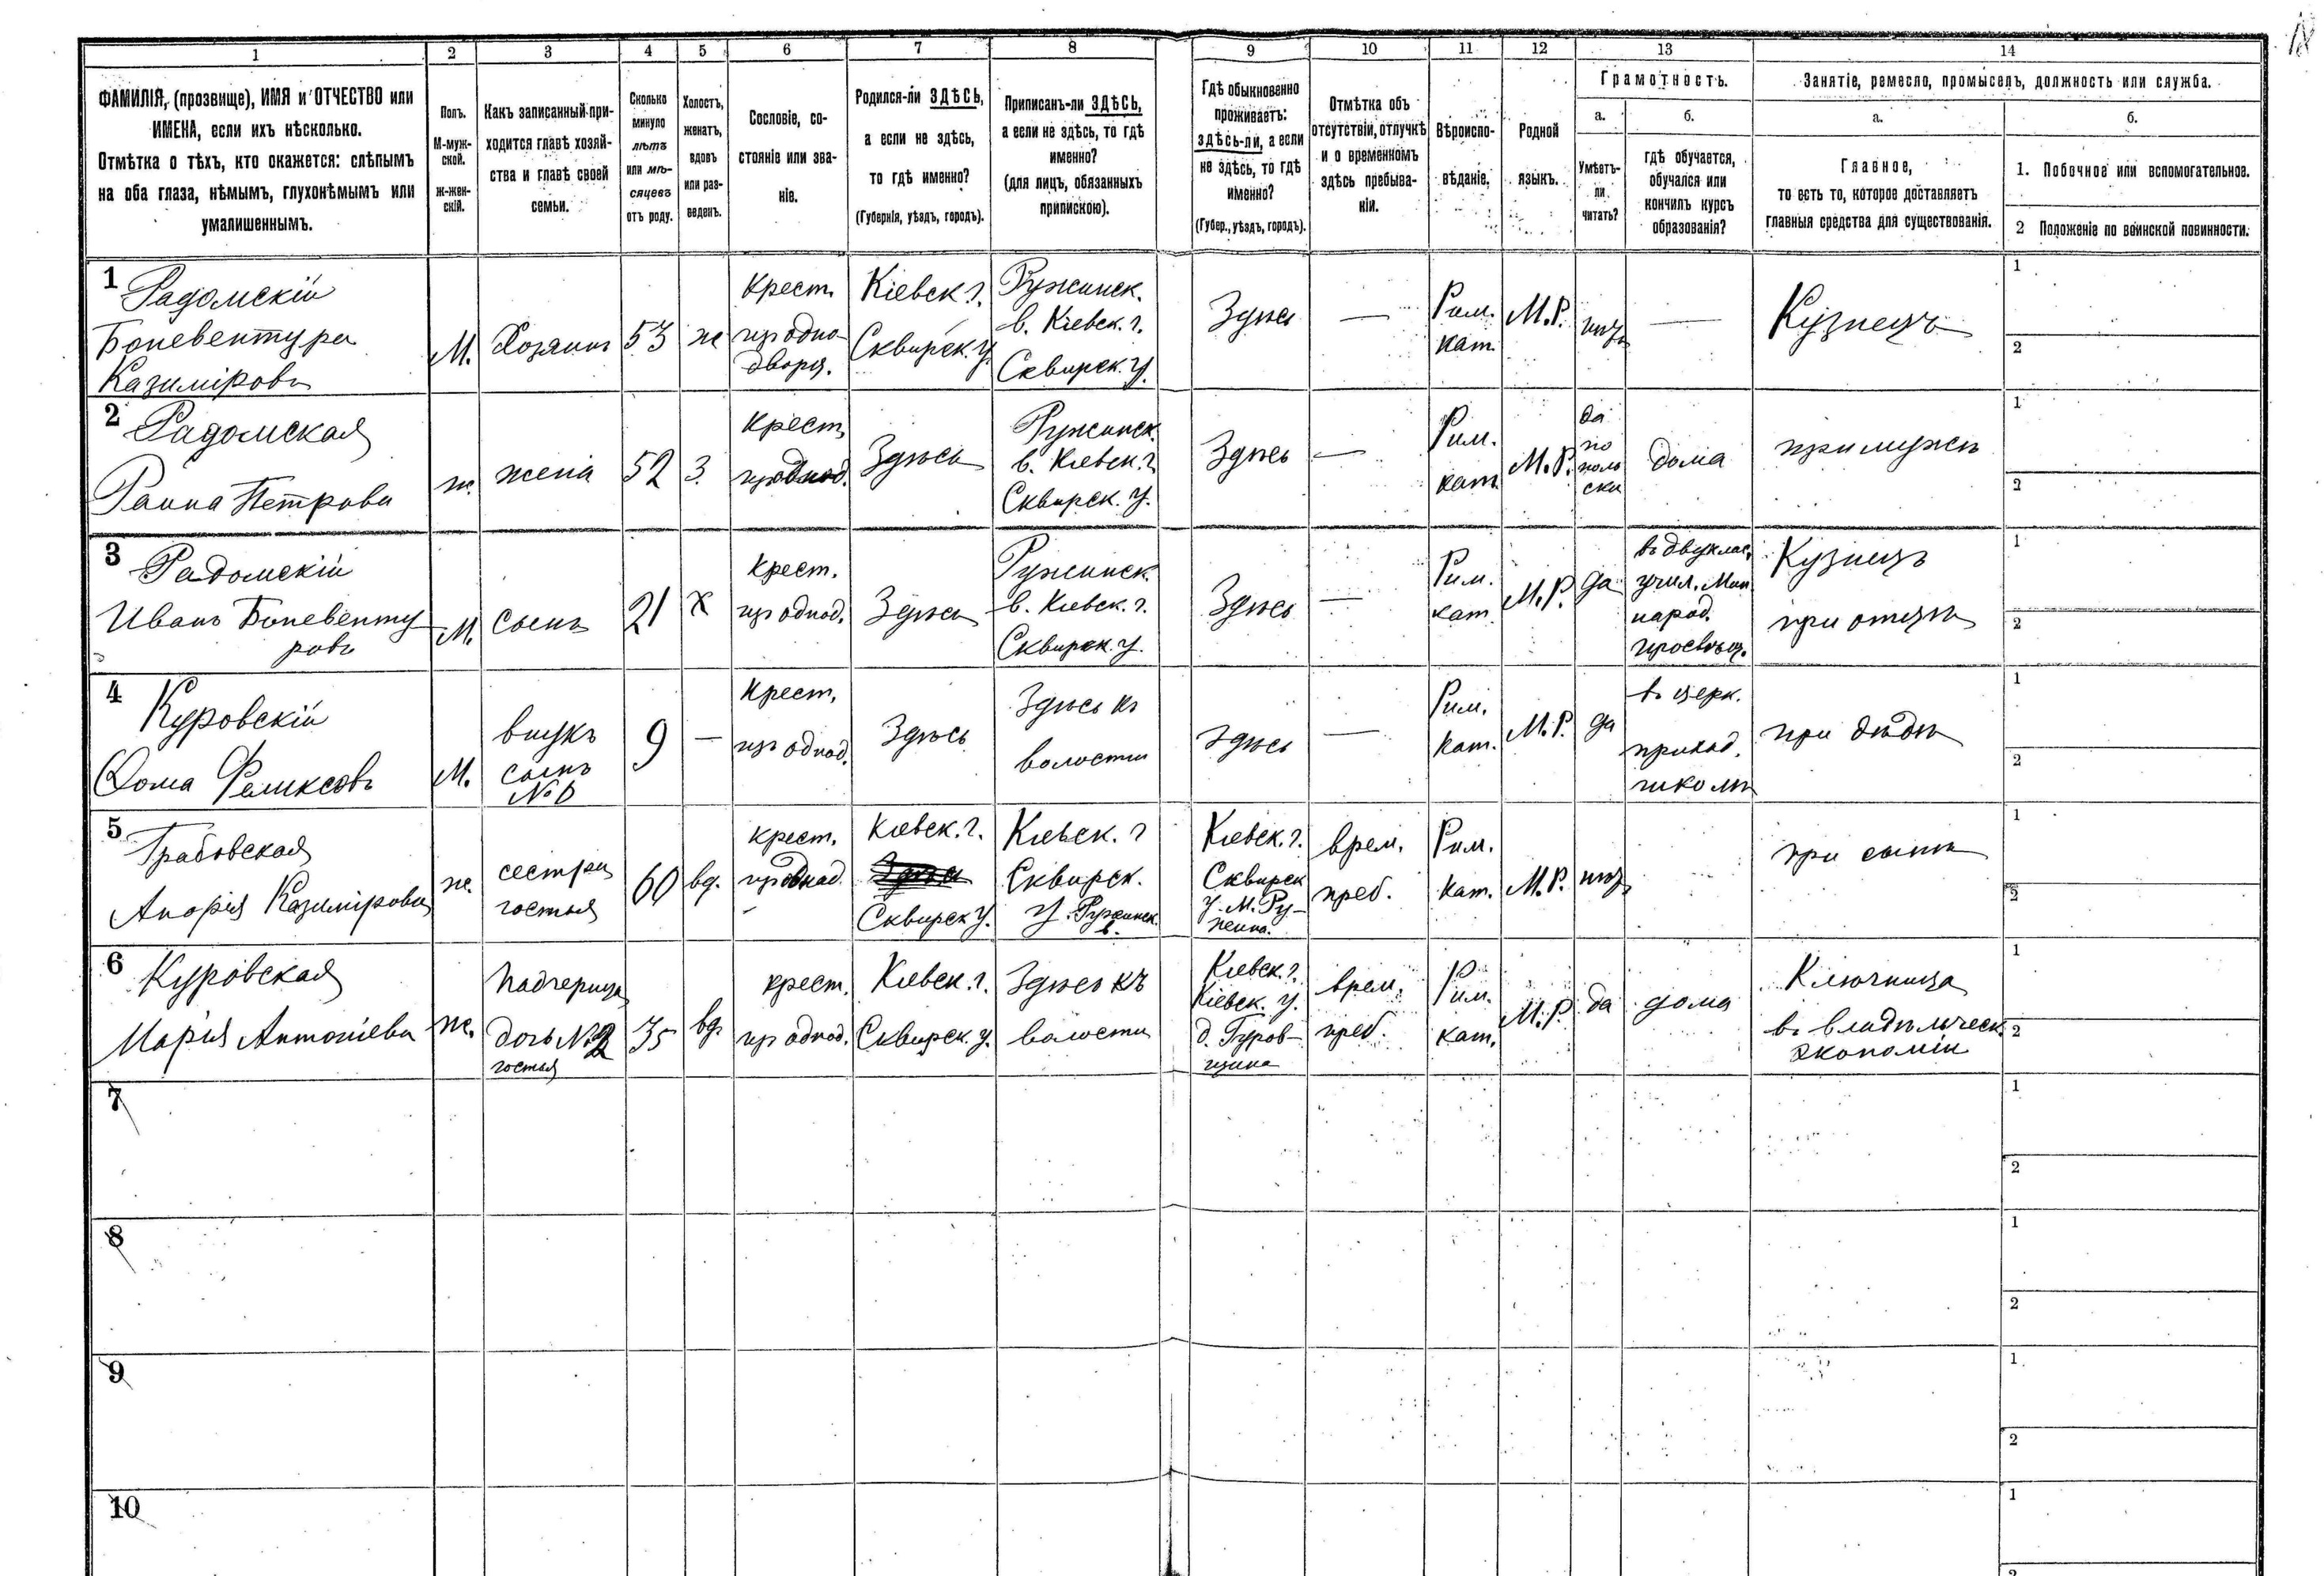 18
1 2 3 4 5 6 7 8 9 10 11 12 13 14
ФАМИЛІЯ, (прозвище), ИМЯ и ОТЧЕСТВО или
ИМЕНА, если ихъ нѣсколько.
Отмѣтка о тѣхъ, кто окажется: слѣпымъ
на оба глаза, нѣмымъ, глухонѣмымъ или
умалишеннымъ.
Полъ.
М-муж-
ской.
Ж-жен-
скій.
Какъ записанный при-
ходится главѣ хозяй-
ства и главѣ своей
семьи.
Сколько
минуло
лѣтъ
или мѣ-
сяцевъ
отъ роду.
Холостъ,
женатъ,
вдовъ
или раз-
веденъ.
Сословіе, со-
стояніе или зва-
ніе.
Родился-ли ЗДѢСЬ,
а если не здѣсь,
то гдѣ именно?
(Губернія, уѣздъ, городъ).
Приписанъ-ли ЗДѢСЬ,
а если не здѣсь, то гдѣ
именно?
(для лицъ, обязанныхъ
припискою).
Гдѣ обыкновенно
проживаетъ:
здѣсь-ли, а если
не здѣсь, то гдѣ
именно?
(Губер., уѣздъ, городъ).
Отмѣтка объ
отсутствіи, отлучкѣ
и о временномъ
здѣсь пребыва-
ніи.
Вѣроиспо-
вѣданіе.
Родной
языкъ.
Грамотность.
а.
Умѣетъ-
ли
читать?
б.
гдѣ обучается,
обучался или
кончилъ курсъ
образованія?
Занятіе, ремесло, промыселъ, должность или служба.
а.
Главное,
то есть то, которое доставляетъ
главныя средства для существованія.
б.
1. Побочное или вспомогательное.
2 Положеніе по воинской повинности.
1
Радомскій
Боневентура
Казиміровъ
М.
Хозяинъ
53
ж
Крест.
изъ одно-
дворц.
Кіевск. г.
Сквирск. у.
Ружинск.
в. Кіевск. г.
Сквирск. у.
Здѣсь
—
Рим.
кат.
М.Р.
нѣтъ
—
Кузнецъ
1
2
2
Радомская
Ганна Петрова
ж.
жена
52
з.
Крест.
изъ однод.
Здѣсь
Ружинск.
в. Кіевск. г.
Сквирск. у.
Здѣсь
—
Рим.
кат.
М.Р.
да
по
поль
ски
дома
при мужѣ
1
2
3
Радомскій
Иванъ Боневенту
ровъ
М.
Сынъ
21
х
Крест.
изъ однод.
Здѣсь
Ружинск.
в. Кіевск. г.
Сквирск. у.
Здѣсь
—
Рим.
кат.
М.Р.
да
въ двуклас.
учил. Мин.
народ.
просвѣщ.
Кузнецъ
при отцѣ
1
2
4
Куровскій
Фома Феликсовъ
М.
внукъ
сынъ
№ 6
9
—
Крест.
изъ однод.
Здѣсь
Здѣсь къ
волости
здѣсь
—
Рим.
кат.
М.Р.
да
въ церк.
приход.
школѣ
при дѣдѣ
1
2
5
Грабовская
Казимірова
ж.
сестра
гостья
60
вд.
крест.
изъ однод.
Кіевск. г.
Здѣсь
Сквирск. у.
Кіевск. г.
Сквирск.
у. Ружинск.
в.
Кіевск. г.
Сквирск
у. М. Ру-
жина.
врем.
преб.
Рим.
кат.
М.Р.
нѣтъ
при сынѣ
1
2
6
Куровская
Марія Антоніева
ж.
падчерица
дочь № 2
гостья
35
вд.
крест.
изъ однод.
Кіевск. г.
Сквирск. у.
Здѣсь къ
волости
Кіевск. г.
Кіевск. у.
д. Гуров-
щина
врем.
преб.
Рим.
кат.
М.Р.
да
дома
Ключница
въ владѣльческ.
экономіи
1
2
7
1
2
8
1
2
9
1
2
10
1
2